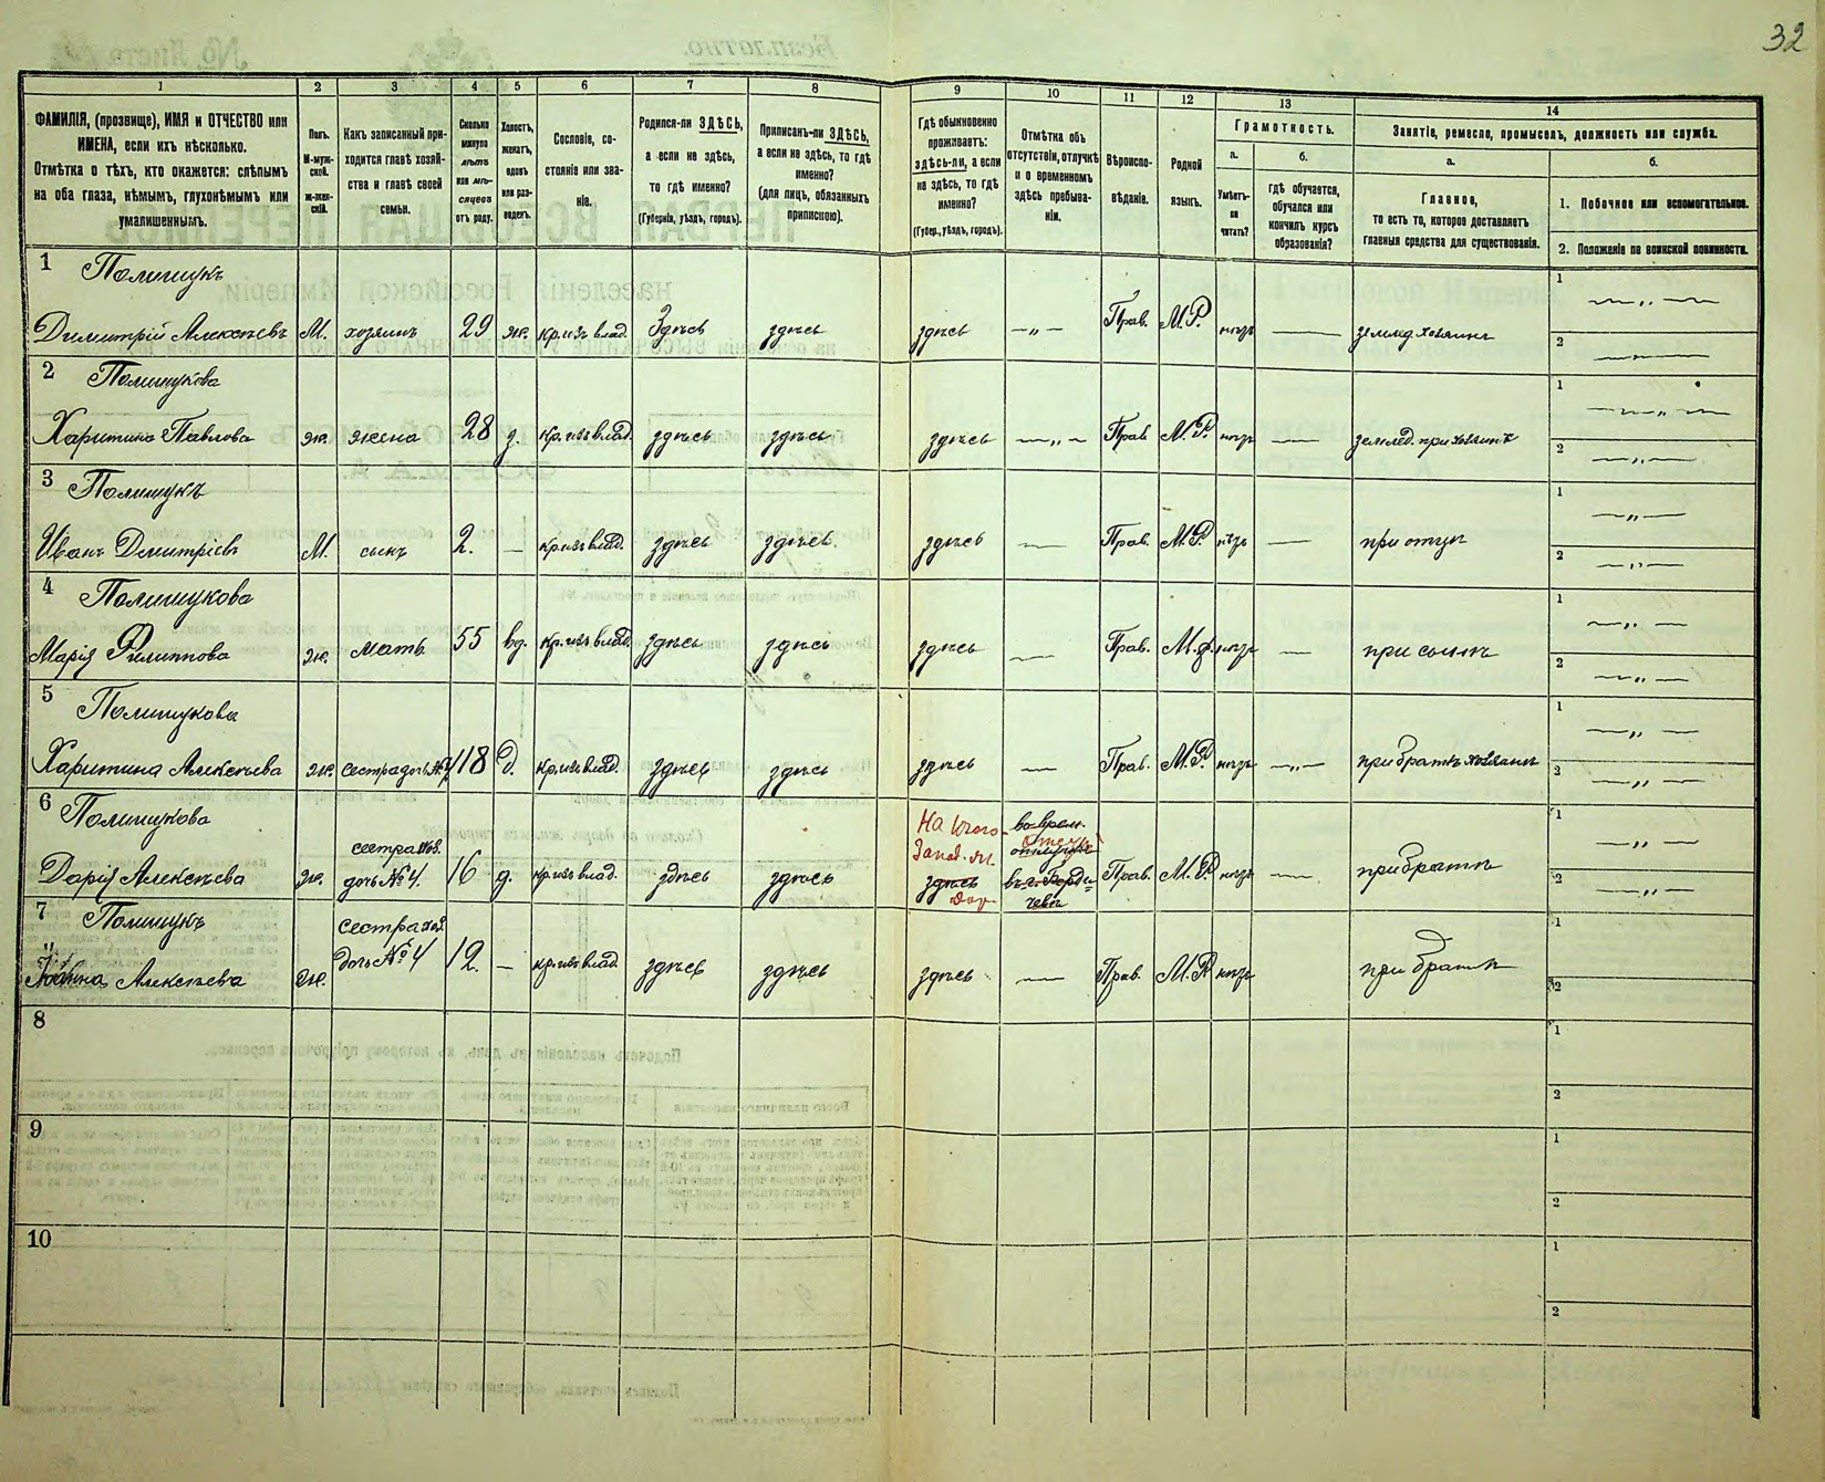 32
1 2 3 4 5 6 7 8 9 10 11 12 13 14
ФАМИЛІЯ, (прозвище), ИМЯ и ОТЧЕСТВО или
ИМЕНА, если ихъ нѣсколько.
Отмѣтка о тѣхъ, кто окажется: слѣпымъ
на оба глаза, нѣмымъ, глухонѣмымъ или
умалишеннымъ.
Полъ.
М-муж-
ской.
ж-жен-
скій.
Какъ записанный при-
ходится главѣ хозяй-
ства и главѣ своей
семьи.
Сколько
минуло
лѣтъ
или мѣ-
сяцевъ
отъ роду.
Холостъ,
женатъ,
вдовъ
или раз-
веденъ.
Сословіе, со-
стояніе или зва-
ніе.
Родился-ли ЗДѢСЬ,
а если не здѣсь,
то гдѣ именно?
(Губернія, уѣздъ, городъ).
Приписанъ-ли ЗДѢСЬ,
а если не здѣсь, то гдѣ
именно?
(для лицъ, обязанныхъ
припискою).
Гдѣ обыкновенно
проживаетъ:
здѣсь-ли, а если
не здѣсь, то гдѣ
именно?
(Губер., уѣздъ, городъ).
Отмѣтка объ
отсутствіи, отлучкѣ
и о временномъ
здѣсь пребыва-
ніи.
Вѣроиспо-
вѣданіе.
Родной
языкъ.
Грамотность.
а.
Умѣетъ-
ли
читать?
б.
гдѣ обучается,
обучался или
кончилъ курсъ
образованія?
Занятіе, ремесло, промыселъ, должность или служба.
а.
Главное,
то есть то, которое доставляетъ
главныя средства для существованія.
б.
1. Побочное или вспомогательное.
2. Положеніе по воинской повинности.
1 Полищукъ
Димитрій Алексѣевъ М. хозяинъ 29 ж. кр. изъ влад. Здѣсь здѣсь здѣсь — " — Прав. М.Р. нѣтъ — землед. хозяинъ
1 — " —
2 —
2 Полищукова
Харитина Павлова ж. жена 28 з. кр. изъ влад. здѣсь здѣсь здѣсь — " — Прав. М.Р. нѣтъ — землед. при хозяинѣ
1 — " —
2 — " —
3 Полищукъ
Иванъ Димитріевъ М. сынъ 2. — кр. изъ влад. здѣсь здѣсь. здѣсь — Прав. М.Р. нѣтъ — при отцѣ
1 — " —
2 — " —
4 Полищукова
Марія Филиппова ж. мать 55 вд. кр. изъ влад. здѣсь здѣсь здѣсь — Прав. М.Р. нѣтъ — при сынѣ
1 — " —
2 — " —
5 Полищукова
Харитина Алексѣева ж. сестра дочь №4 18 д. кр. изъ влад. здѣсь здѣсь здѣсь — Прав. М.Р. нѣтъ — " — при братѣ хозяинѣ
1 — " —
2 — " —
6 Полищукова
Дарія Алексѣева ж. сестра хоз. дочь №4. 16 д. кр. изъ влад. здѣсь здѣсь
На
здѣсь
во врем.
отлучкѣ
въ г. Берди-
чевѣ
Прав. М.Р. нѣтъ — при братѣ
1 — " —
2 — " —
7 Полищукъ
Алексѣева ж. сестра хоз. дочь №4 12. — кр. изъ влад. здѣсь здѣсь здѣсь — Прав. М.Р. нѣтъ при братѣ
1
2
8
1
2
9
1
2
10
1
2